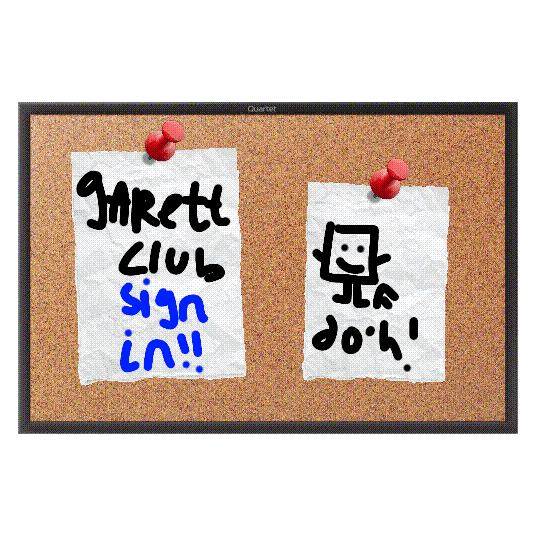 Quartet
gARett
club
sign
in!!
do·h!